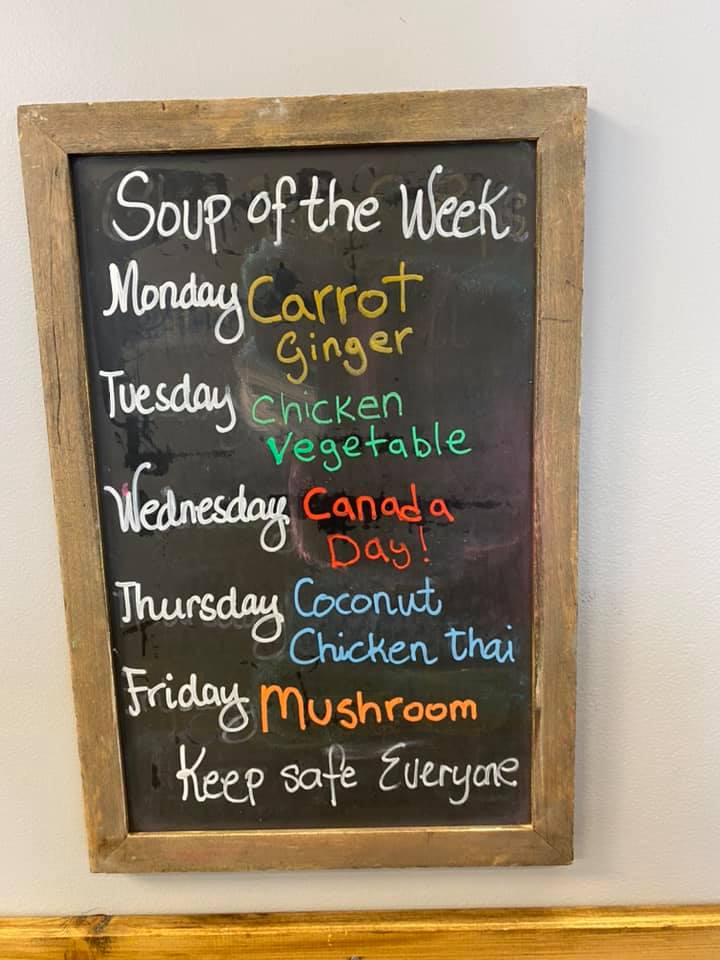 Soup of the Week
Monday Carrot
Ginger
Tuesday Chicken
Vegetable
Wednesday Canada
Day!
Thursday Coconut
Chicken thai
Friday Mushroom
Keep safe Everyone